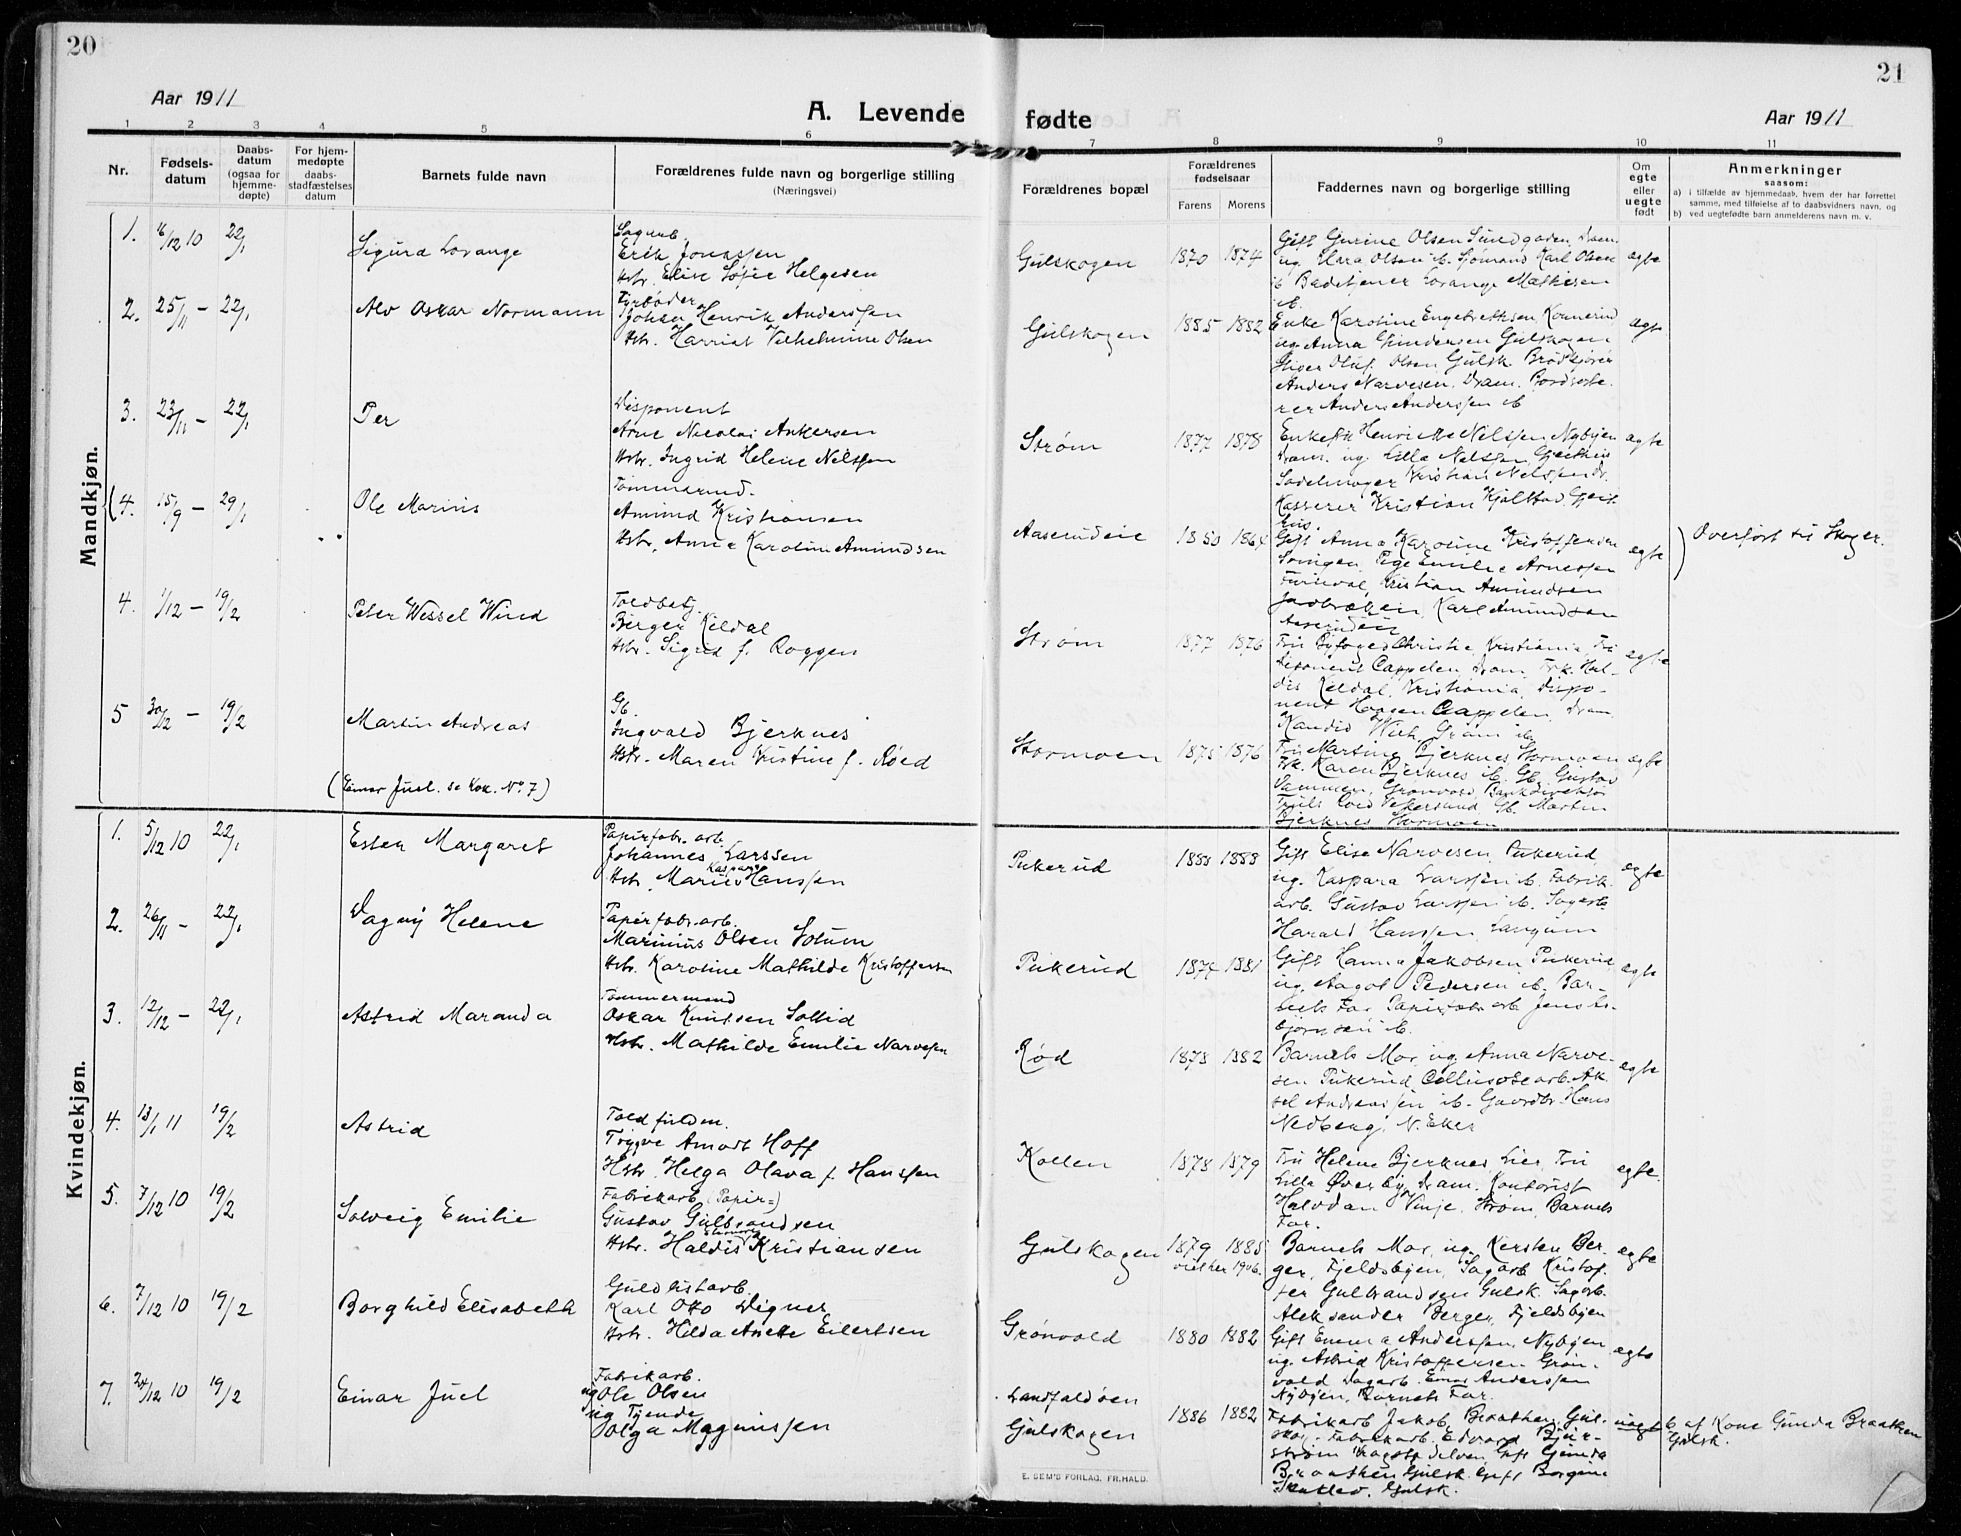 20
21
Aar 1911
A. Levende fødte
Aar 1911
1 2 3 4 5 6 7 8 9 10 11
Nr.
Fødsels-
datum
Daabs-
datum
(ogsaa for
hjemme-
døpte)
For hjem-
medøpte
daabs-
stadfæstelses
datum
Barnets fulde navn
Forældrenes fulde navn og borgerlige stilling
(Næringsvei)
Forældrenes bopæl
Forældrenes
fødselsaar
Farens Morens
Faddernes navn og borgerlige stilling
Om
egte
eller
uegte
født
Anmerkninger
saasom:
a) i tilfælde av hjemmedaab, hvem der har forrettet
samme, med tilføielse af to daabsvidners navn, og
b) ved uegtefødte barn anmelderens navn m. v.
Mandkjøn.
1. 16/12 10 22/1
Sigurd Lorange
Sagarb.
Erik Jonassen
Hstr. Elise Sofie Helgesen
Gulskogen
1870 1874
Gift Gurine Olsen
ug. Klara Olsen ib. Sjømand Karl Olsen
ib Badetjener Lorange Mathisen
ib.
egte
2. 25/11 – 22/1
Alv Oskar Normann
Fyrbøder
Johan Henrik Anderssen
Hstr. Harriet Vilhelmine Olsen
Gulskogen
1885 1882
Enke Karoline Engebrethsen, Konnerud
ug. Anna Gundersen Gulskogen
Oluf Olsen Gulsk. Brødkjører
Anders Narvesen, Dram.
rer Anders Anderssen ib
egte
3. 23/11 – 22/1
Per
Disponent
Arne Nicolai Ankersen
Hstr. Ingrid Helene Nelssen
Strøm
1877 1878
Enkefr Nelssen, Nybyen
Dram. ug. Lilla Nelssen,
Sadelmager Kristian Nelssen
Kasserer Kristian
egte
(4. 15/9 – 29/1
Ole Marius
Tømmermd.
Amund Kristiansen
Hstr. Anne Karoline Amundsen
Aaserudeie
1850 1864
Gift Anna Karoline Kristoffersen
Svingen, Pige Emilie Arnessen
Kristian Amundsen
Karl Amundsen
Aaserudeie
egte
) Overført til Skoger.
4. 1/12 – 19/2
Peter Wessel Wind
Toldbetj.
Birger Kildal
Hstr. Sigrid f. Roggen
Strøm
1877 1876
Fru Byfoged Christie, Kristiania, Fru
Disponent Cappelen Dram, Frk. Hal-
dis Kildal, Kristiania, Dispo-
nent Haagen Cappelen, Dram.
Kandid Wiel, Dram
egte
5 30/12 – 19/2
Martin Andreas
Gb.
Ingvald Bjerknes
Hstr. Maren Kristine f. Røed
Stormoen
1875 1876
Fru Martine Bjerknes Stormoen
Frk. Karen Bjerknes ib. Gb. Gustav
Sammen, Grønvold, Bankdirektør
Troils Lund Gb. Martin
Bjerknes Stormoen
egte
(Einar Juel. se Kvk. No 7)
Kvindekjøn.
1. 5/12 10 22/1
Ester Margaret
Papirfabr. arb.
Johannes Larssen
Kaspara
Hstr. Marie Hanssen
Pukerud
1888 1888
Gift Elise Narvesen, Pukerud
ug. Kaspara Larssen ib. Fabrik-
arb. Gustav Larssen ib. Sagarb.
Harald Hanssen, Langum
egte
2. 26/11 – 22/1
Dagny Helene
Papirfabr. arb.
Marinius Olsen Solum
Hstr. Karoline Mathilde Kristoffersen
Pukerud
1874 1881
Gift Hanna Jakobsen, Pukerud
ug. Aagot Pedersen ib. Bar-
nets Far, Papirfabr. arb Jens Es-
bjørnsen ib.
egte
3. 12/12 – 22/1
Astrid Maranda
Tømmermand
Oskar Knutsen Sollid
Hstr. Mathilde Emilie Narvesen
Rød
1873 1882
Barnets Mor, ug. Anna Narve-
sen Pukerud, Cellulosearb. Ak-
sel Andreassen ib. Gaardbr. Hans
Nedberg, N. Eker
egte
4. 13/1 11 19/2
Astrid
Toldfuldm.
Trygve Amodt Hoff
Hstr. Helga Olava f. Hanssen
Kollen
1878 1879
Fru Helene Bjerknes, Lier, Fru
Lilla Øverby, Dram, Kontorist
Halvdan Vinje, Strøm, Barnets
Far.
egte.
5. 7/12 10 19/2
Solveig Emilie
Fabrikarb. (Papir=)
Gustav Gulbrandsen
Hstr. Haldis Kristiansen
Gulskogen
1879 1885
viet her 1906.
Barnets Mor, ug. Kersten Ber-
ger, Fjeldsbyen, Sagarb Kristof-
fer Gulbrandsen Gulsk. Sagarb.
Aleksander Berger, Fjeldsbyen
egte
6. 7/12 10 19/2
Borghild Elisabeth
Guldlistarb.
Karl Otto Wigner
Hstr. Hilda Anette Eilertsen
Grønvold
1880 1882
Gift Emma Anderssen, Nybyen
ug. Astrid Kristoffersen Grøn-
vold Dagarb. Einar Anderssen
Nybyen, Barnets Far.
egte
7. 24/12 10 19/2
Einar Juel
Fabrikarb.
ug Ole Olsen
ug Tjende
Olga Magnussen
Landfaldøen
Gulskogen
1886 1882
Fabrikarb Jakob Braathen, Gul-
skog. Fabrikarb. Edvard Bjør-
strøm Gift Gunda
Braathen Gulsk. Gift Borgine
Gulsk.
uegte
b. af Kone Gunda Braathen
Gulsk.
E. SEM'S FORLAG, FR.HALD.